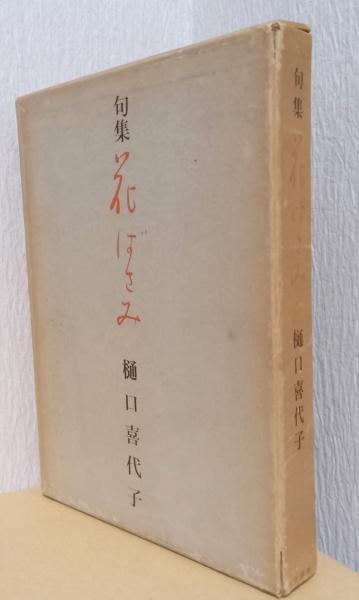 句集
花ばさみ
樋口喜代子
句集
花ばさみ
樋口喜代子